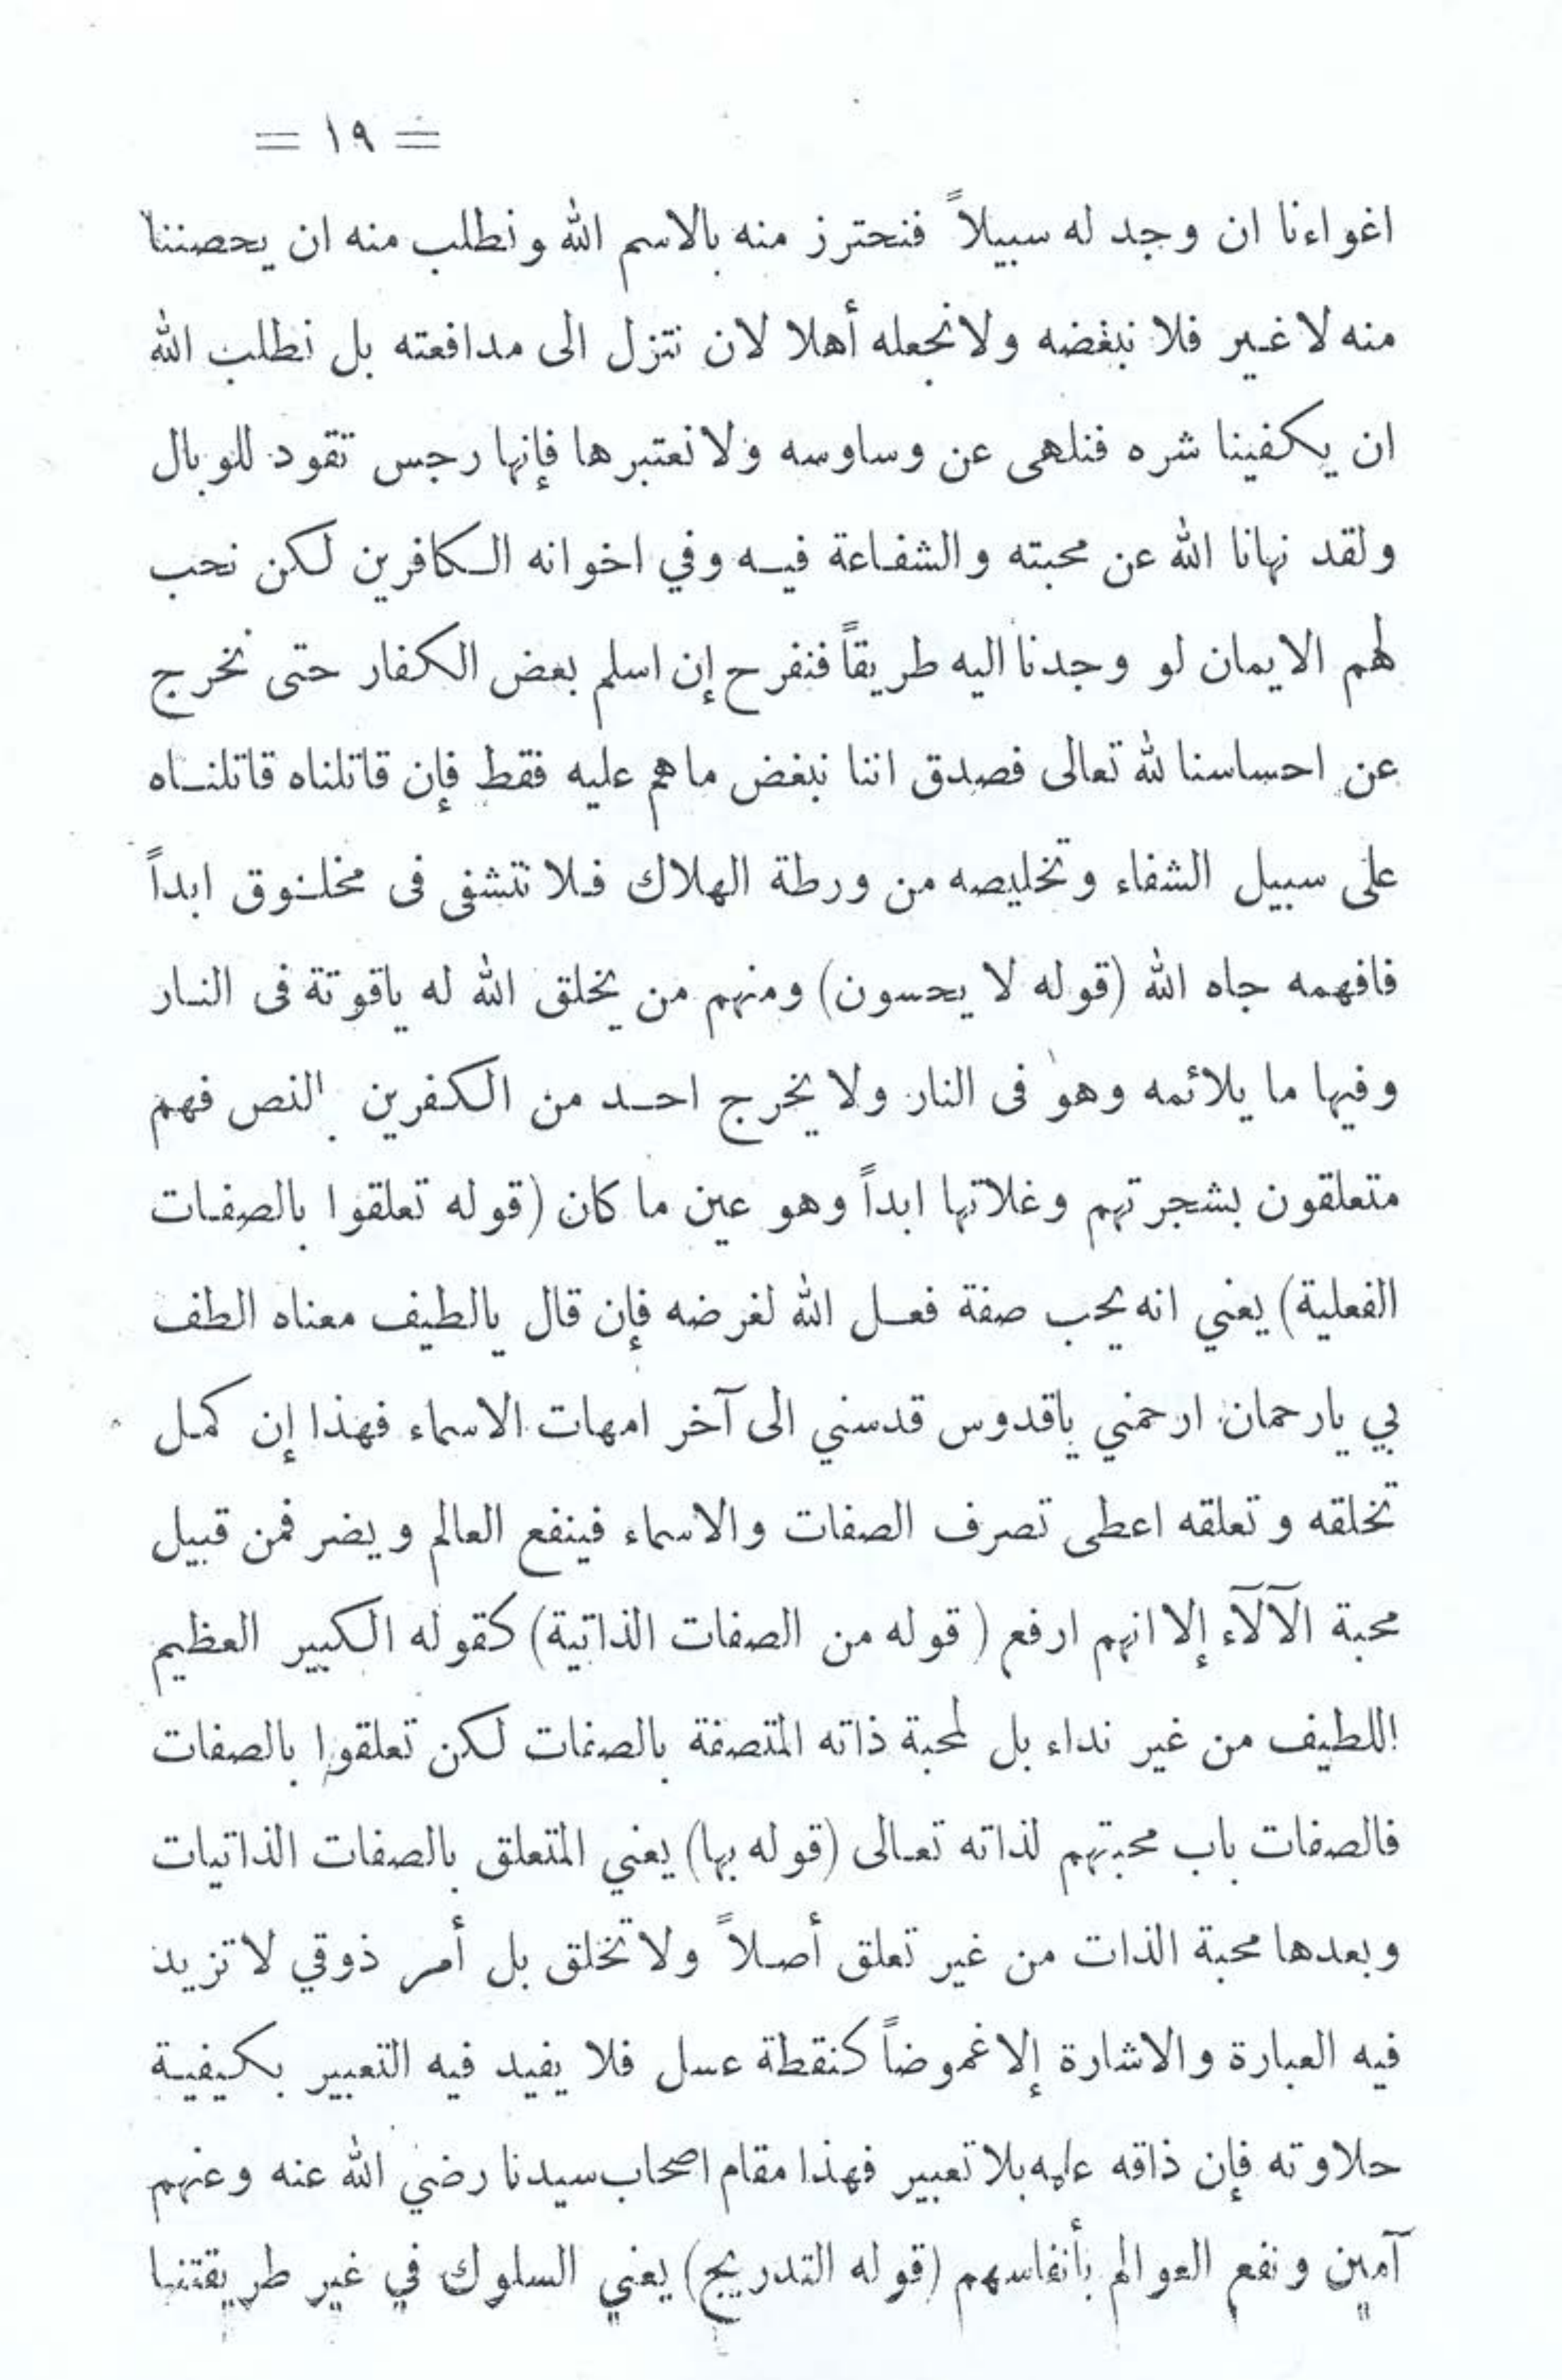 = ١٩ =
اغواءنا ان وجد له سبيلاً فنحترز منه بالاسم الله ونطلب منه ان يحصننا
منه لا غير فلا نبغضه ولا نجعله أهلا لان نتزل الى مدافعته بل نطلب الله
ان يكفينا شره فنلهى عن وساوسه ولا نعتبرها فإنها رجس تقود للوبال
ولقد نهانا الله عن محبته والشفاعة فيه وفي اخوانه الكافرين لكن نحب
لهم الايمان لو وجدنا اليه طريقاً فنفرح إن اسلم بعض الكفار حتى نخرج
عن احساسنا لله تعالى فصدق اننا نبغض ما هم عليه فقط فإن قاتلناه قاتلناه
على سبيل الشفاء وتخليصه من ورطة الهلاك فلا نتشفى فى مخلوق ابداً
فافهمه جاه الله (قوله لا يحسون) ومنهم من يخلق الله له ياقوتة فى النار
وفيها ما يلائمه وهو فى النار ولا يخرج احد من الكفرين النص فهم
متعلقون بشجرتهم وغلاتها ابداً وهو عين ما كان (قوله تعلقوا بالصفات
الفعلية) يعني انه يحب صفة فعل الله لغرضه فإن قال يالطيف معناه الطف
بي يارحمان ارحمني ياقدوس قدسني الى آخر امهات الاسماء فهذا إن كمل
تخلقه وتعلقه اعطى تصرف الصفات والاسماء فينفع العالم ويضر فمن قبيل
محبة الآلآء إلا انهم ارفع (قوله من الصفات الذاتية) كقوله الكبير العظيم
اللطيف من غير نداء بل لمحبة ذاته المتصفة بالصفات لكن تعلقوا بالصفات
فالصفات باب محبتهم لذاته تعالى (قوله بها) يعني المتعلق بالصفات الذاتيات
وبعدها محبة الذات من غير تعلق أصلاً ولا تخلق بل أمر ذوقي لا تزيد
فيه العبارة والاشارة إلا غموضاً كنقطة عسل فلا يفيد فيه التعبير بكيفية
حلاوته فإن ذاقه علمه بلا تعبير فهذا مقام اصحاب سيدنا رضي الله عنه وعنهم
آمين ونفع العوالم بأنفاسهم (قوله التدريج) يعني السلوك في غير طريقتنا